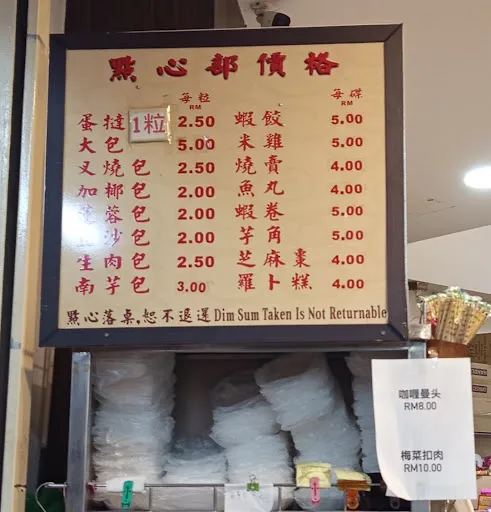 點心部價格
每粒 每碟
RM RM
蛋撻 1粒 2.50 蝦餃 5.00
大包 5.00 米雞 5.00
叉燒包 2.50 燒賣 4.00
加椰包 2.00 魚丸 4.00
蓉包 2.00 蝦卷 5.00
沙包 2.00 芋角 5.00
生肉包 2.50 芝麻棗 4.00
南芋包 3.00 羅卜糕 4.00
點心落桌,恕不退還 Dim Sum Taken Is Not Returnable
咖喱曼头
RM8.00
梅菜扣肉
RM10.00